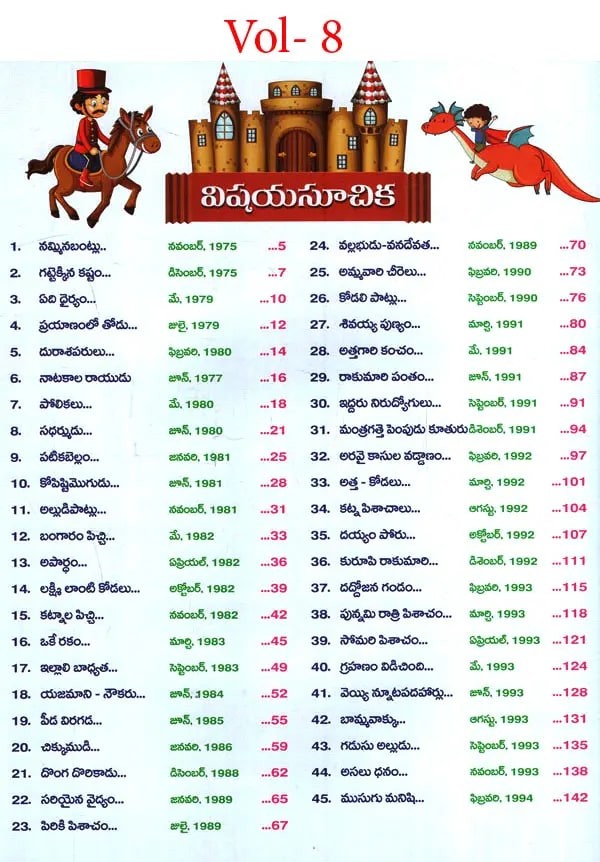 Vol- 8
విషయసూచిక
1. నమ్మినబంట్లు.. నవంబర్, 1975 ...5
2. గట్టెక్కిన కష్టం... డిసెంబర్, 1975 ...7
3. ఏది ధైర్యం... మే, 1979 ...10
4. ప్రయాణంలో తోడు... జులై, 1979 ...12
5. దురాశపరులు... ఫిబ్రవరి, 1980 ...14
6. నాటకాల రాయుడు జూన్, 1977 ...16
7. పోలికలు... మే, 1980 ...18
8. సధర్ముడు... జూన్, 1980 ...21
9. పటికబెల్లం... జనవరి, 1981 ...25
10. కోపిష్టిమొగుడు... జూన్, 1981 ...28
11. అల్లుడిపాట్లు... నవంబర్, 1981 ...31
12. బంగారం పిచ్చి... మే, 1982 ...33
13. అపార్థం... ఏప్రియల్, 1982 ...36
14. లక్ష్మి లాంటి కోడలు... అక్టోబర్, 1982 ...39
15. కట్నాల పిచ్చి... నవంబర్, 1982 ...42
16. ఒకే రకం... మార్చి, 1983 ...45
17. ఇల్లాలి బాధ్యత... సెప్టెంబర్, 1983 ...49
18. యజమాని - నౌకరు... జూన్, 1984 ...52
19. పీడ విరగడ... జూన్, 1985 ...55
20. చిక్కుముడి... జనవరి, 1986 ...59
21. దొంగ దొరికాడు... డిసెంబర్, 1988 ...62
22. సరియైన వైద్యం... జనవరి, 1989 ...65
23. పిరికి పిశాచం... జులై, 1989 ...67
24. వల్లభుడు-వనదేవత... నవంబర్, 1989 ...70
25. అమ్మవారి చీరెలు... ఫిబ్రవరి, 1990 ...73
26. కోడలి పాట్లు... సెప్టెంబర్, 1990 ...76
27. శివయ్య పుణ్యం... మార్చి, 1991 ...80
28. అత్తగారి కంచం... మే, 1991 ...84
29. రాకుమారి పంతం... జూన్, 1991 ...87
30. ఇద్దరు నిరుద్యోగులు... సెప్టెంబర్, 1991 ...91
31. మంత్రగత్తె పెంపుడు కూతురు డిశెంబర్, 1991 ...94
32. అరవై కాసుల వడ్డాణం... ఫిబ్రవరి, 1992 ...97
33. అత్త - కోడలు... మార్చి, 1992 ...101
34. కట్న పిశాచాలు... ఆగస్టు, 1992 ...104
35. దయ్యం పోరు... అక్టోబర్, 1992 ...107
36. కురూపి రాకుమారి... డిశెంబర్, 1992 ...111
37. దద్దోజన గండం... ఫిబ్రవరి, 1993 ...115
38. పున్నమి రాత్రి పిశాచం... మార్చి, 1993 ...118
39. సోమరి పిశాచం... ఏప్రియల్, 1993 ...121
40. గ్రహణం విడిచింది... మే, 1993 ...124
41. వెయ్యి న్నూటపదహార్లు... జూన్, 1993 ...128
42. బామ్మవాక్కు... ఆగస్టు, 1993 ...131
43. గడుసు అల్లుడు... సెప్టెంబర్, 1993 ...135
44. అసలు ధనం... నవంబర్, 1993 ...138
45. ముసుగు మనిషి... ఫిబ్రవరి, 1994 ...142